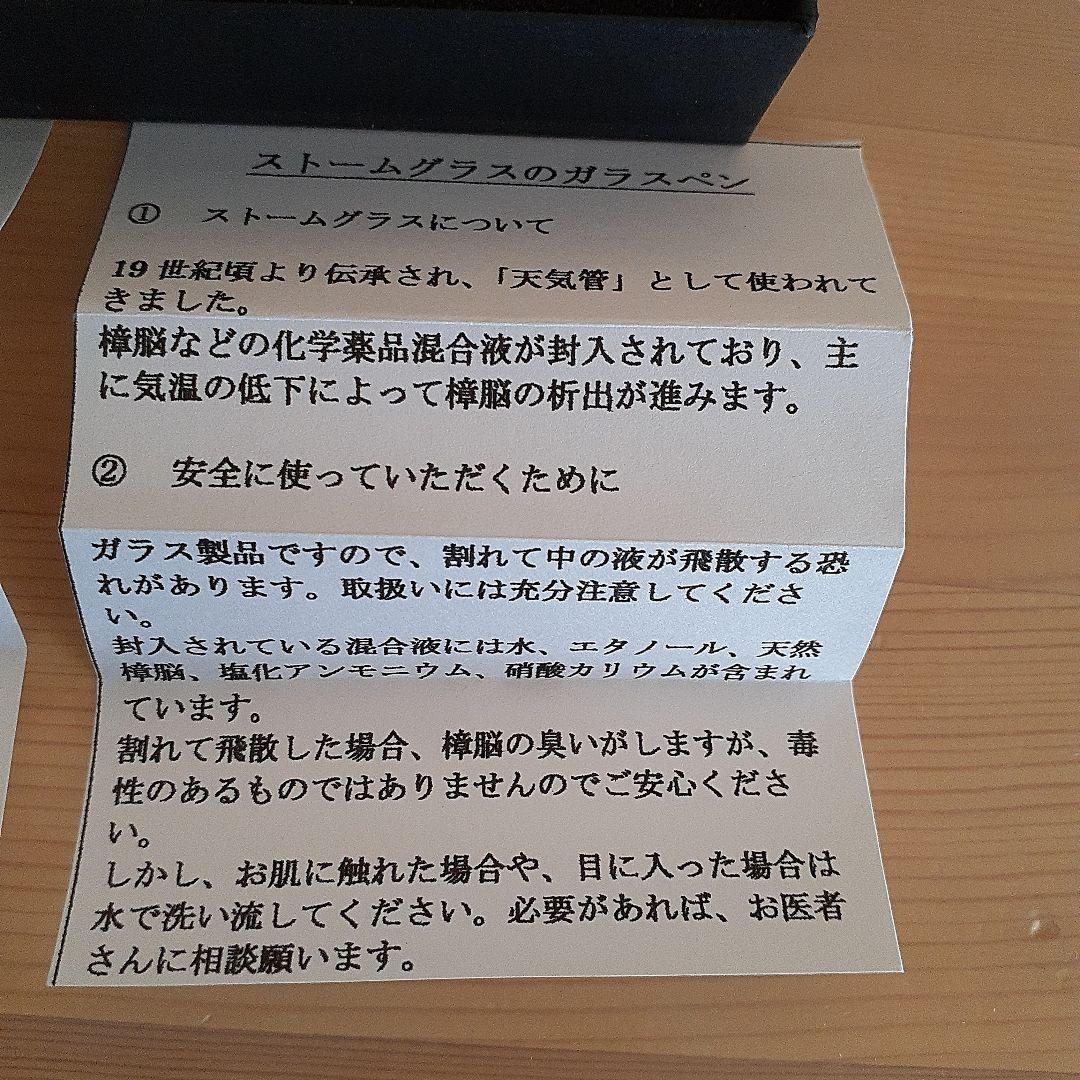 ストームグラスのガラスペン
① ストームグラスについて
19世紀頃より伝承され、「天気管」として使われて
きました。
樟脳などの化学薬品混合液が封入されており、主
に気温の低下によって樟脳の析出が進みます。
② 安全に使っていただくために
ガラス製品ですので、割れて中の液が飛散する恐
れがあります。取扱いには充分注意してくださ
い。
封入されている混合液には水、エタノール、天然
樟脳、塩化アンモニウム、硝酸カリウムが含まれ
ています。
割れて飛散した場合、樟脳の臭いがしますが、毒
性のあるものではありませんのでご安心くださ
い。
しかし、お肌に触れた場合や、目に入った場合は
水で洗い流してください。必要があれば、お医者
さんに相談願います。